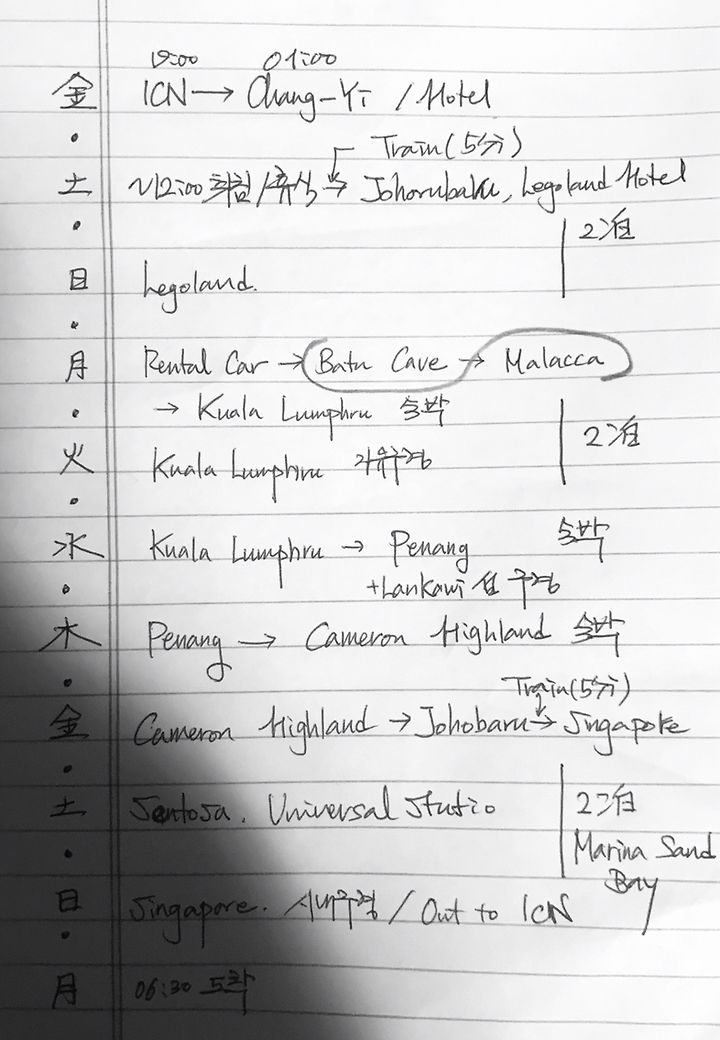 19:00 01:00
金 ICN → Chang-Yi / Hotel
Train(5分)
土 ~12:00 취침/휴식 → Johorubaku, Legoland Hotel
2泊
日 Legoland.
月 Rental Car → Batu Cave → Malacca
→ Kuala Lumphru 숙박
2泊
火 Kuala Lumphru 자유구경
水 Kuala Lumphru → Penang 숙박
+Lankawi 섬 구경
木 Penang → Cameron Highland 숙박
Train(5分)
金 Cameron Highland → Johobaru → Singapore
土 Sentosa. Universal Stutio 2泊
Marina Sand
Bay
日 Singapore. 시내구경 / Out to ICN
月 06:30 도착